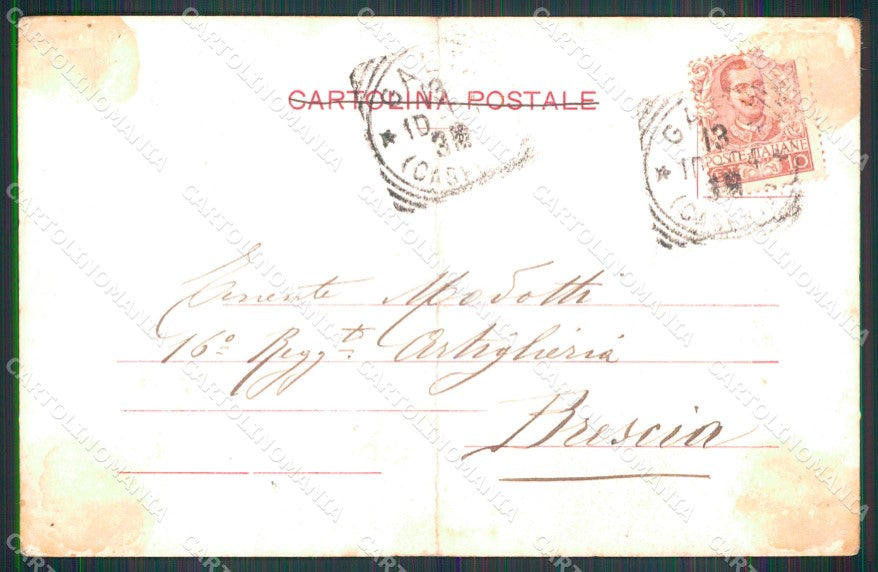 CARTOLINA POSTALE
POSTE ITALIANE
10
GA
13
10
3
(CASER
Tenente Modotti
16º Regg.to Artiglieria
Brescia
CARTOLINOMANIA